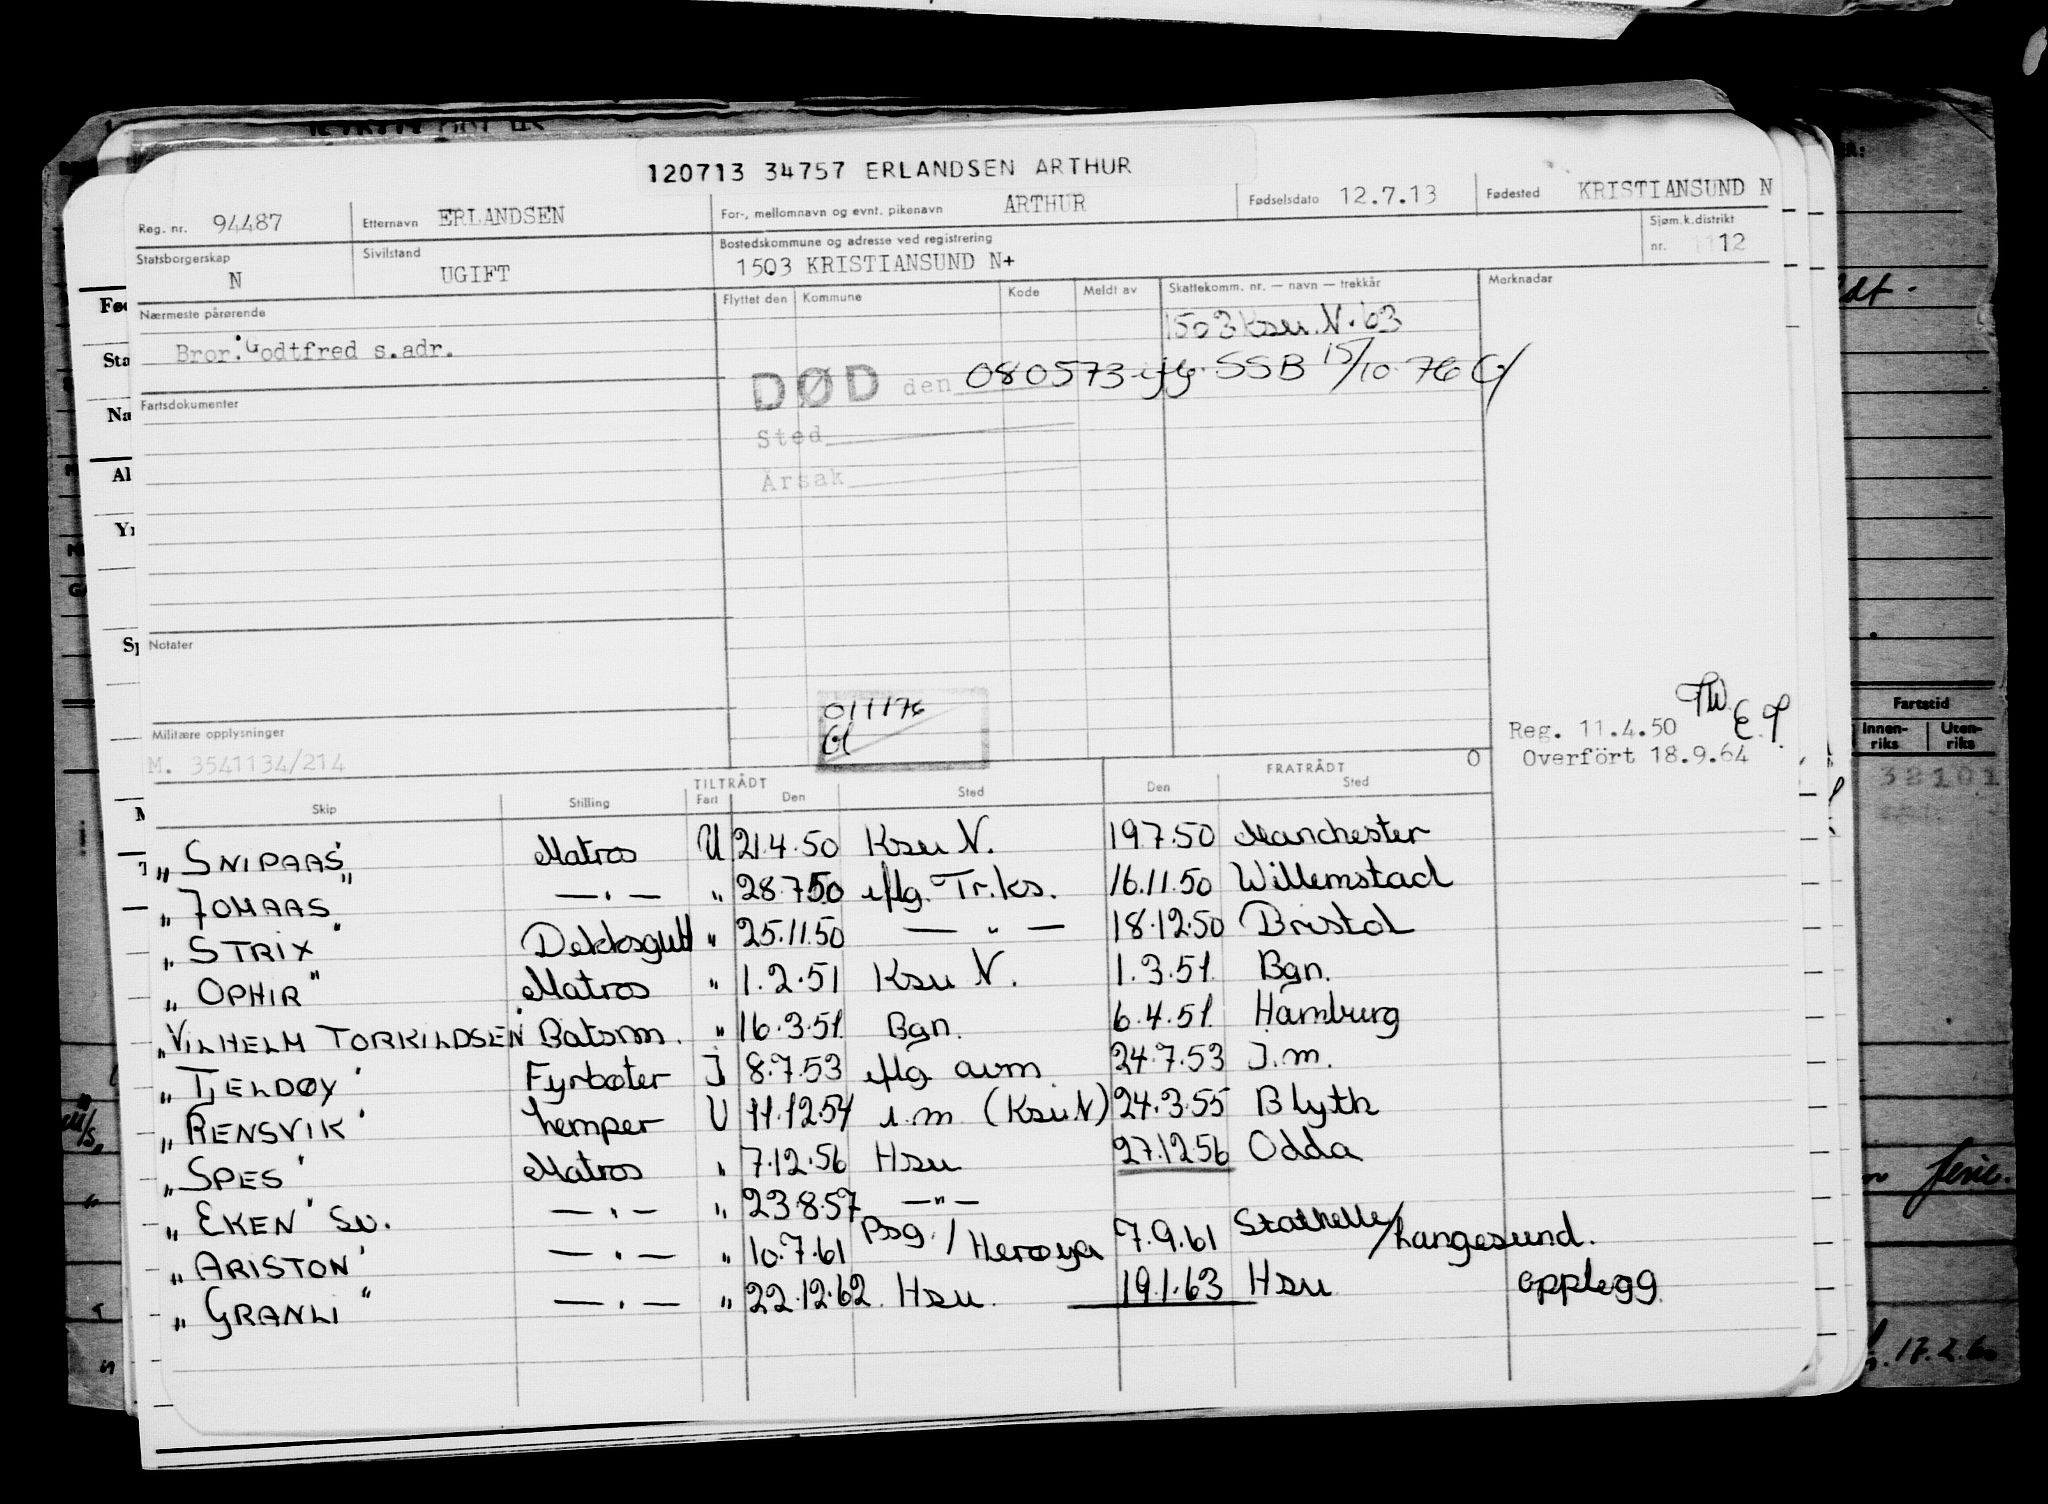 120713 34757 ERLANDSEN ARTHUR
Reg. nr. 94487 Etternavn ERLANDSEN For-, mellomnavn og evnt. pikenavn ARTHUR Fødselsdato 12.7.13 Fødested KRISTIANSUND N
Statsborgerskap N Sivilstand UGIFT Bostedskommune og adresse ved registrering 1503 KRISTIANSUND N+ Sjøm.k.distrikt nr. 12
Nærmeste pårørende Flyttet den Kommune Kode Meldt av Skattekomm. nr. — navn — trekkår Merknadar
1503 Ksu. N. 63
Bror: Godtfred s.adr.
DØD den 080573 iflg. SSB 15/10-76
Fartsdokumenter
Sted
Årsak
Notater
011176
Militære opplysninger
M. 3541134/214
Reg. 11.4.50
Overført 18.9.64
0
TILTRÅDT FRATRÅDT
Skip Stilling Fart Den Sted Den Sted
"SNIPAAS" Matros U 21.4.50 Ksu N. 19.7.50 Manchester
"JOMAAS" — " — " 28.7.50 iflg. Tr.ks. 16.11.50 Willemstad
"STRIX" Dekksgutt " 25.11.50 — " — 18.12.50 Bristol
"OPHIR" Matros " 1.2.51 Ksu N. 1.3.51 Bgn.
"VILHELM TORKILDSEN" Båtsm. " 16.3.51 Bgn. 6.4.51 Hamburg
"TJELDØY" Fyrbøter I 8.7.53 iflg avm 24.7.53 I.m.
"RENSVIK" Lemper U 11.12.54 i.m (Ksu N) 24.3.55 Blyth
"SPES" Matros " 7.12.56 Hsu 27.12.56 Odda
"EKEN" Sv. — " — " 23.8.57 — " —
"ARISTON" — " — " 10.7.61 Psg./Herøya 7.9.61 Stathelle/Langesund.
"GRANLI" — " — " 22.12.62. Hsu. 19.1.63 Hsu opplegg
Fartstid
Innenriks Utenriks
32101
17.2.60